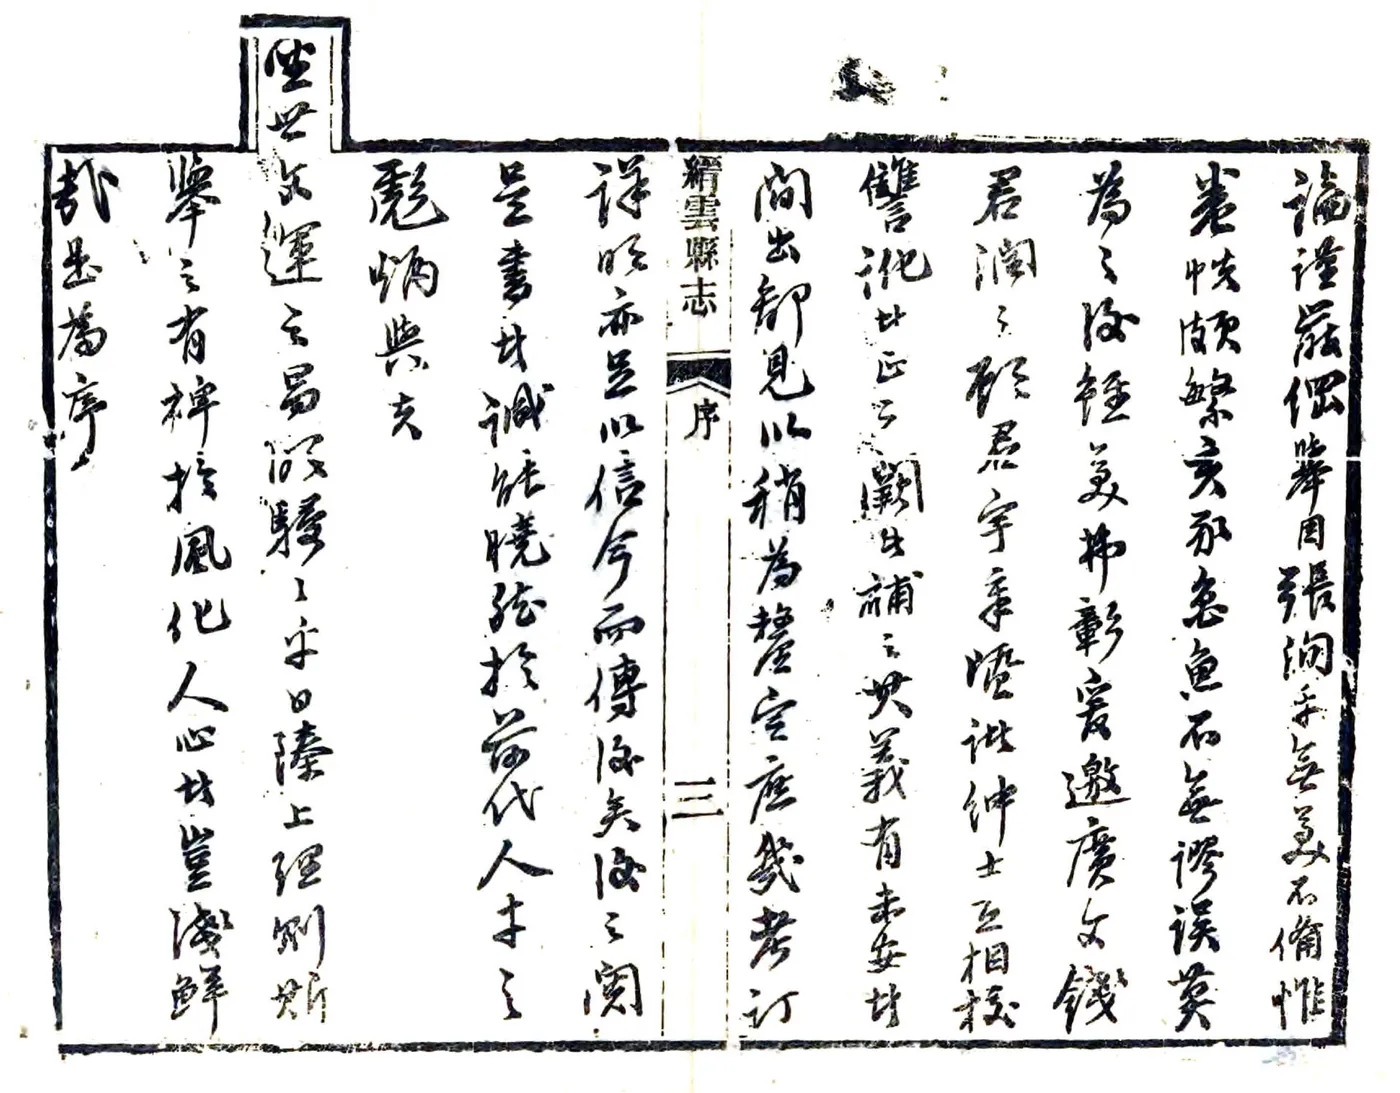 論謹嚴綱舉目張洵乎無美不備惟
卷帙頗繁亥豕魯魚不無謬誤莫
為之後雖美弗彰爰邀廣文錢
君潤之顧君宇章暨諸紳士互相校
讐訛者正之闕者補之其義有未安者
間出鄙見以稍為釐定庶幾考訂
縉雲縣志 序 三
詳明亦足以信今而傳後矣後之閱
是書者誠能曉然於前代人才之
彪炳與夫
盛世文運之昌明駸々乎日臻上理則斯
舉之有裨於風化人心者豈淺鮮
哉是為序